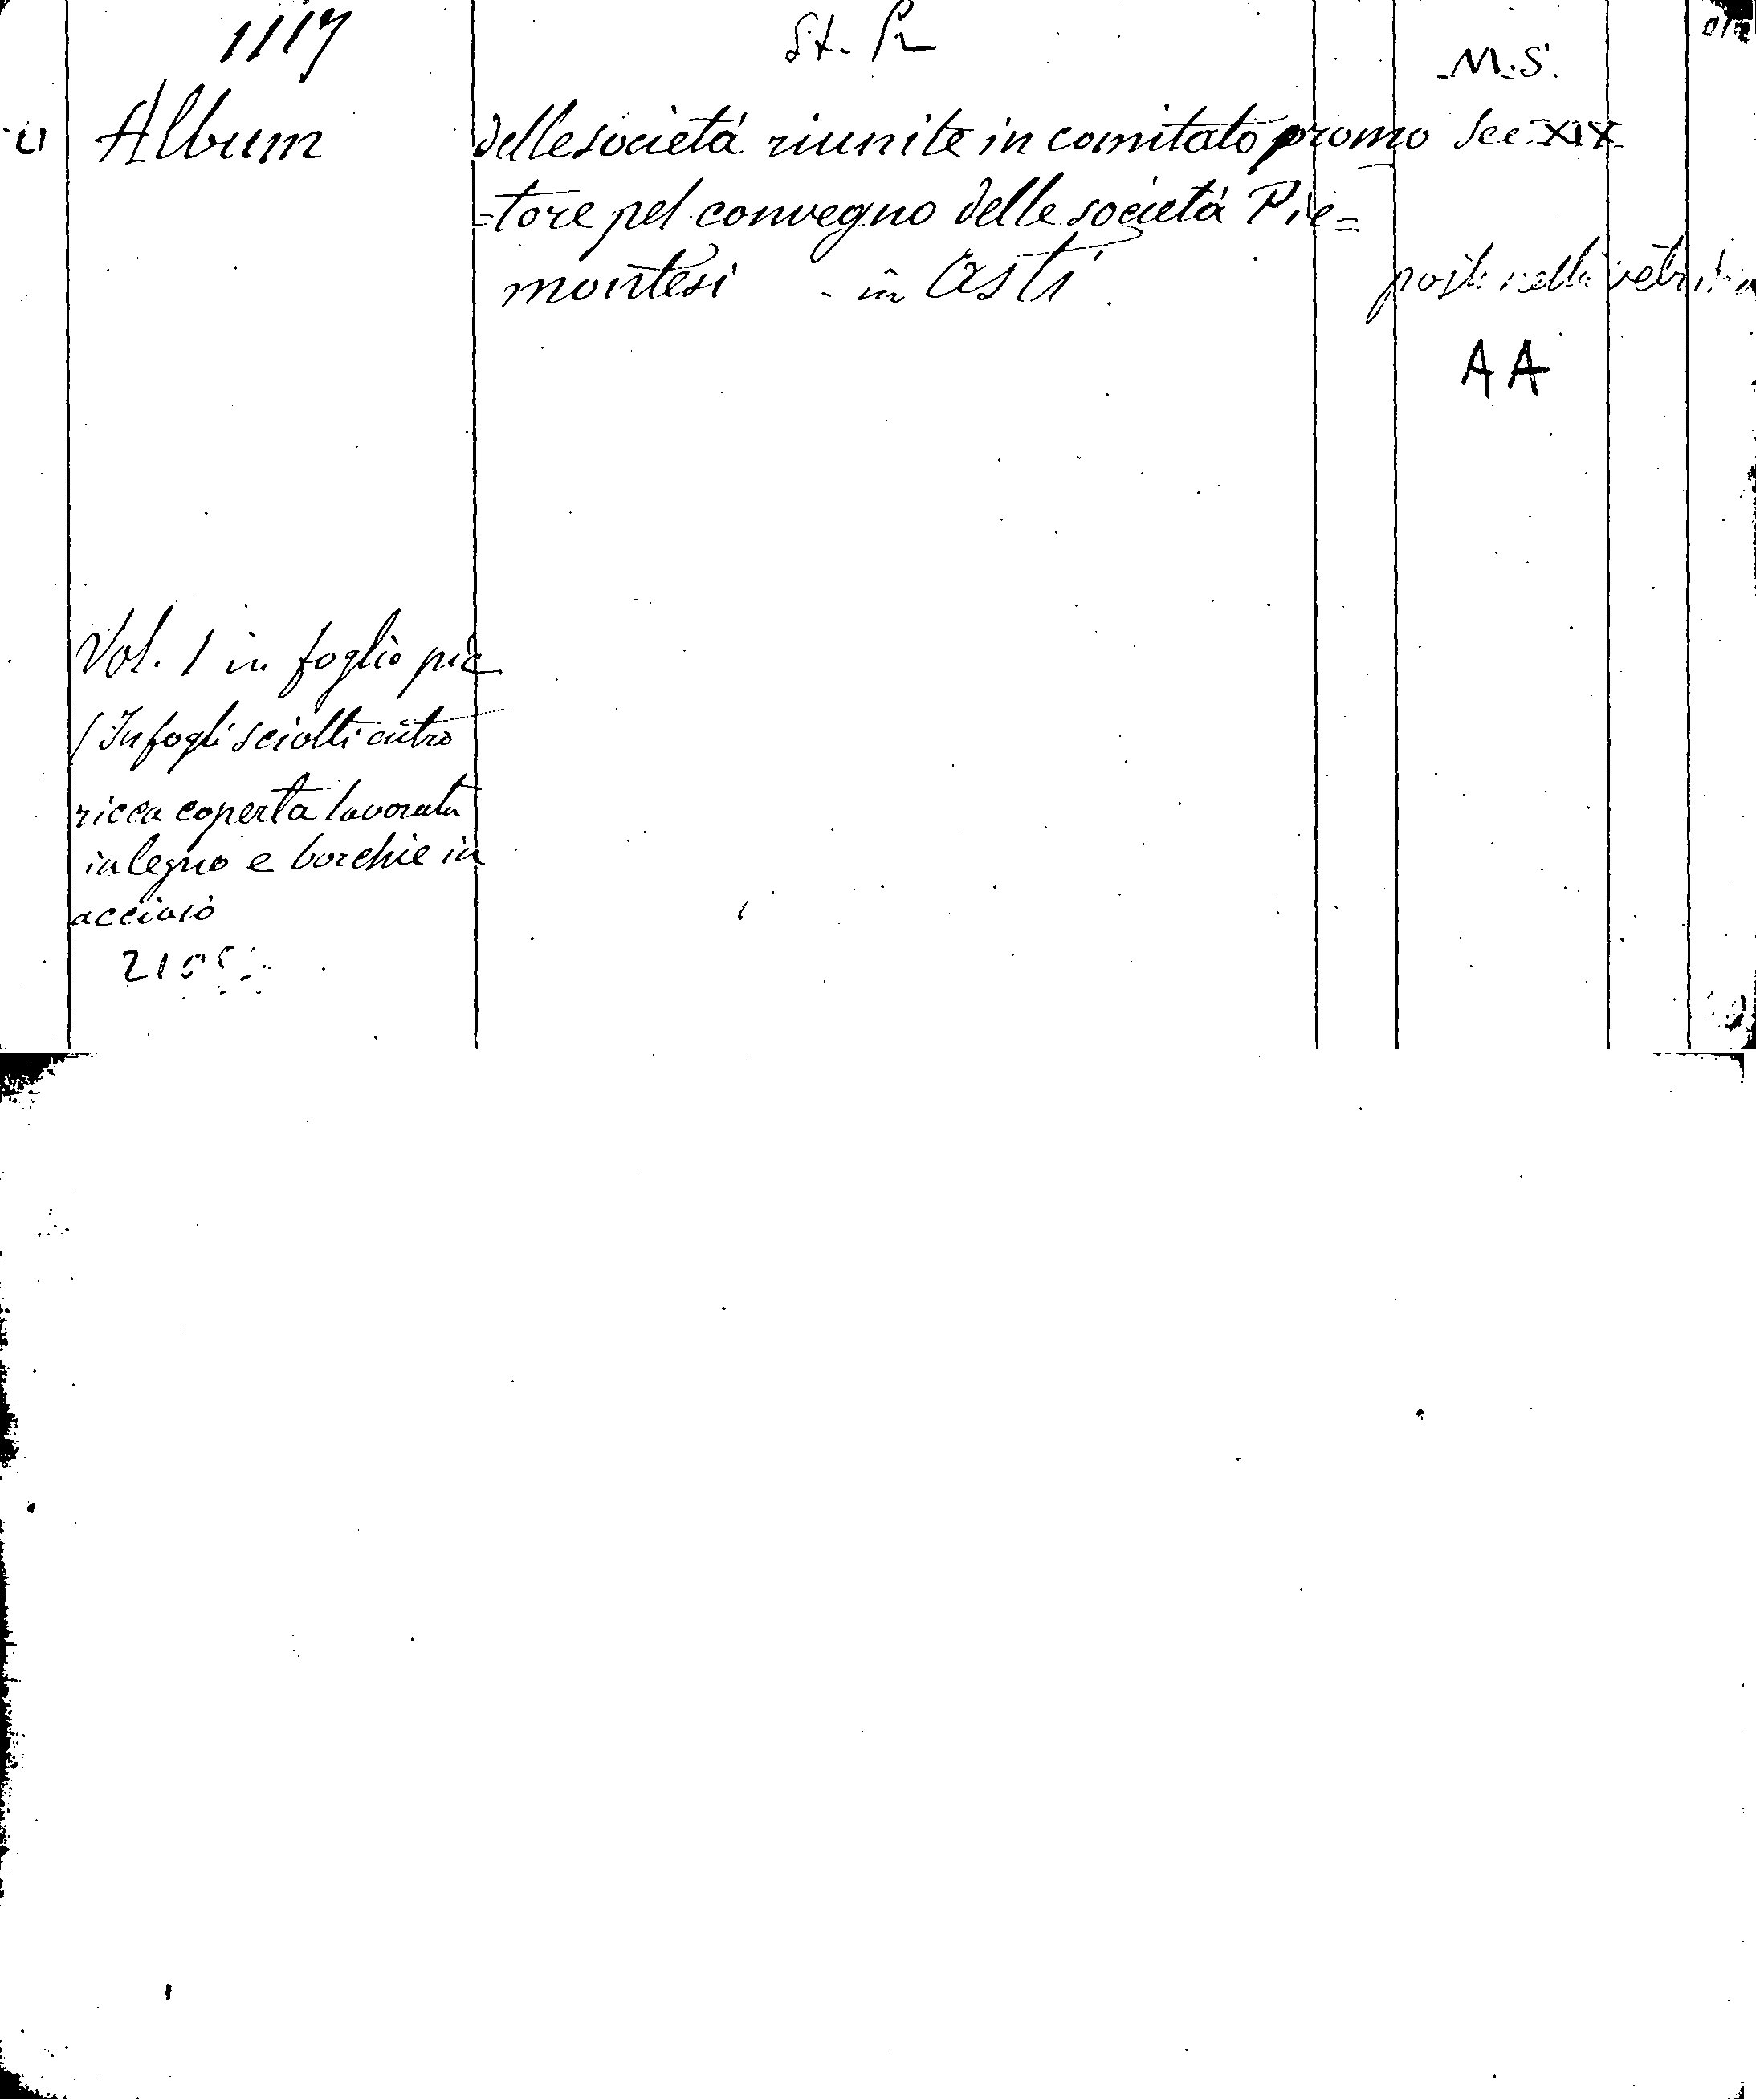 1117
St. Pr
M.S.
Album
delle società riunite in comitato promo Sec. XIX
=tore pel convegno delle società Pie=
montesi - in Asti
posto nella
AA
Vol. 1 in foglio pic
(In fogli sciolti entro
ricca coperta lavorata
in legno e borchie in
acciaio